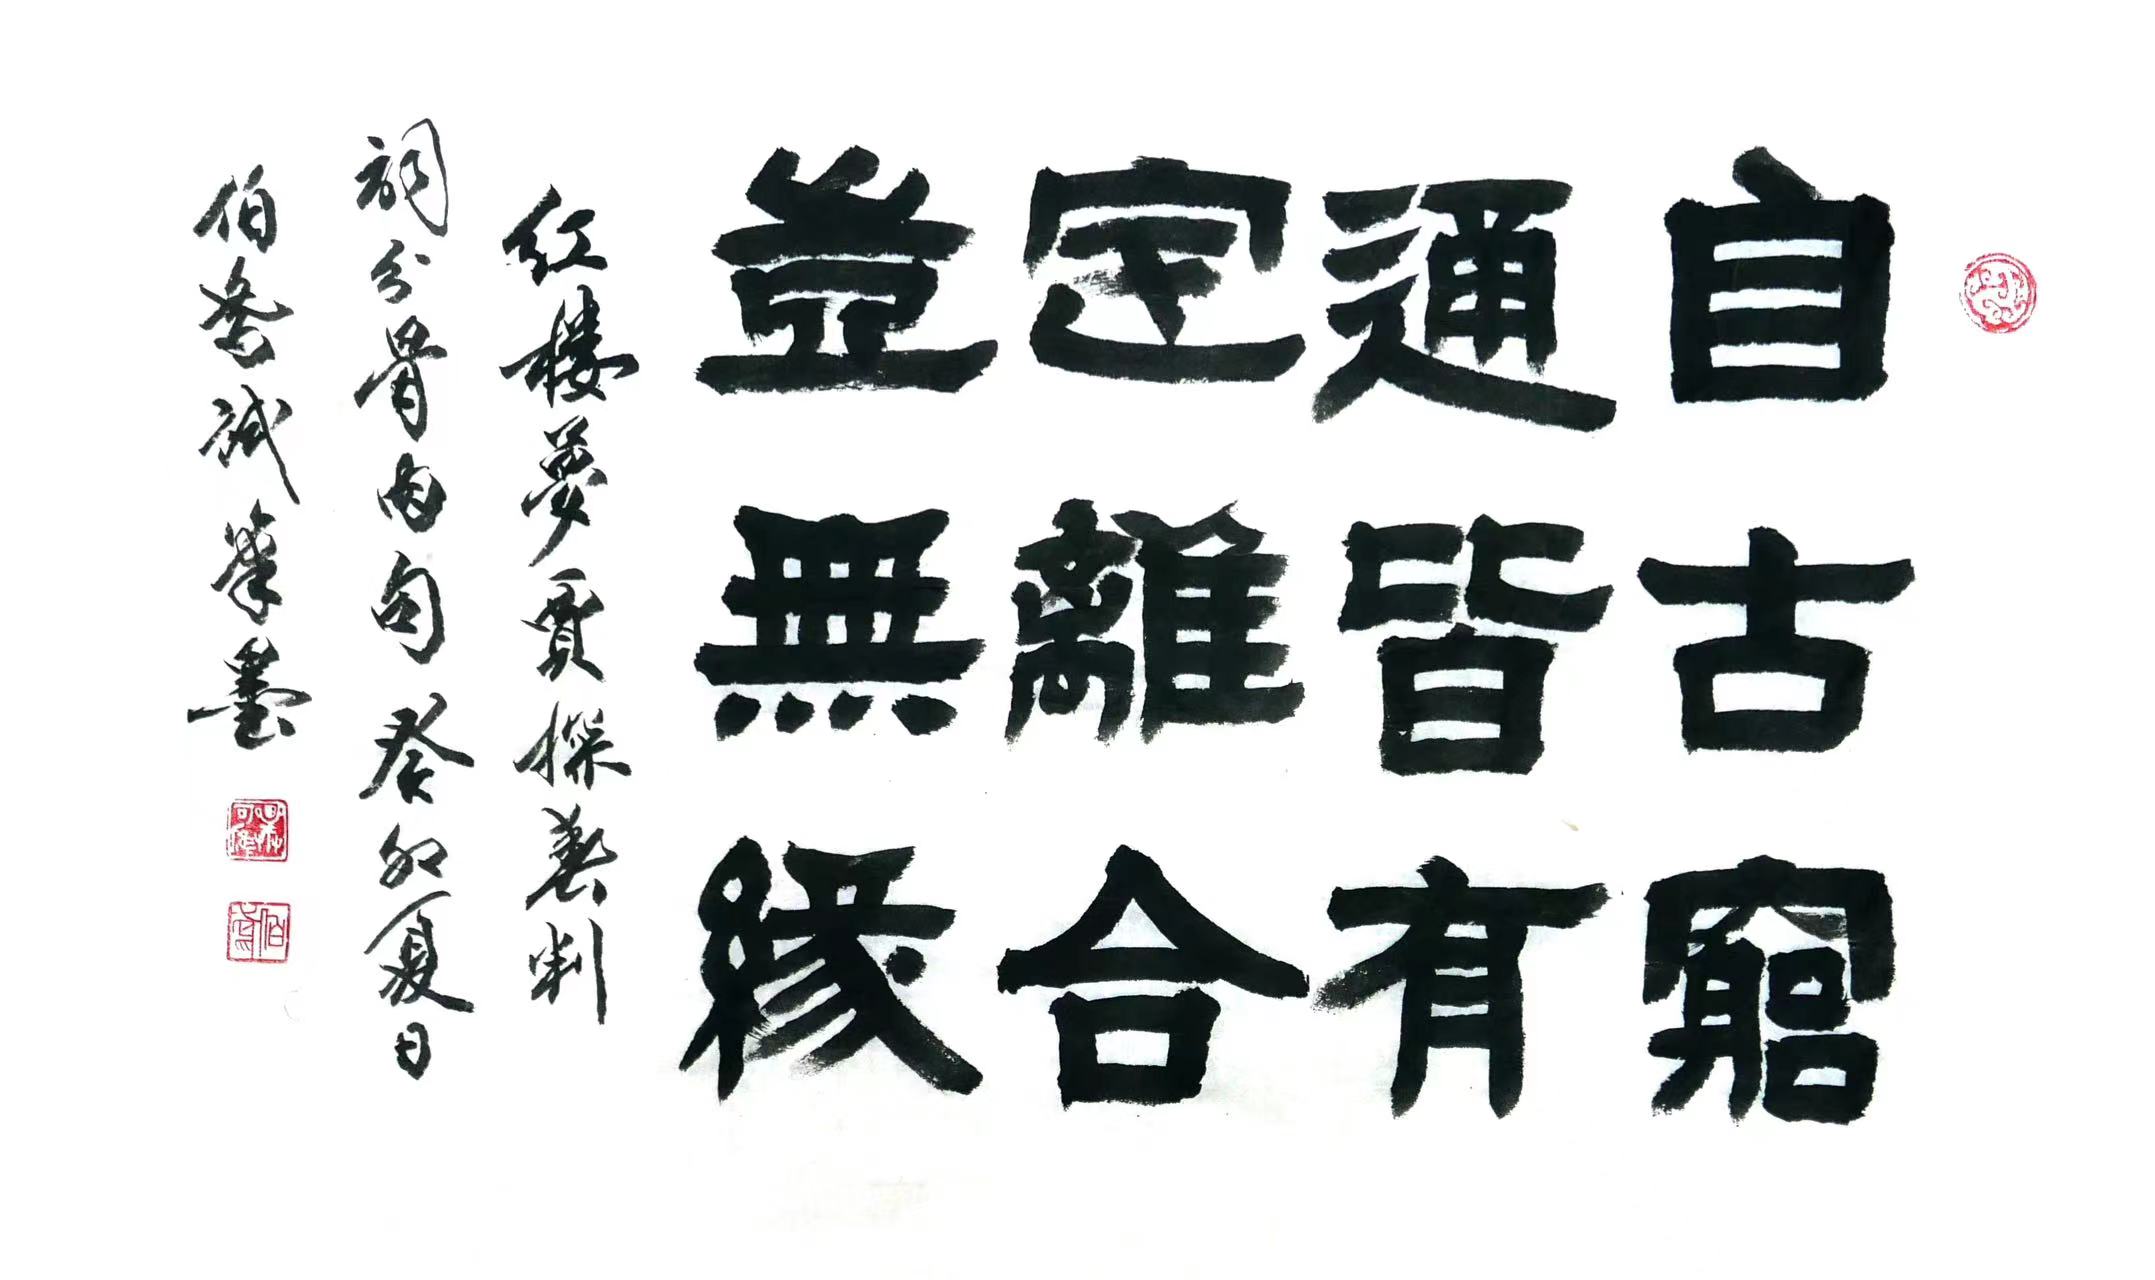 自古窮
通皆有
定離合
豈無緣
红楼夢賈探春判
詞分骨肉句癸卯夏日
伯試筆墨